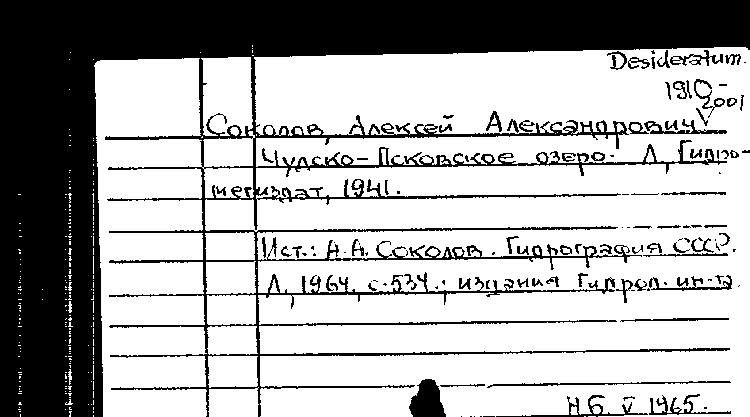 Desideratum.
1910-
2001
Соколов, Алексей Александрович
Чудско-Псковское озеро. Л., Гидро-
метиздат, 1941.
Ист.: А.А. Соколов. Гидрография СССР.
Л., 1964, с. 534.; издания Гидрол. ин-та.
Н.Б. V 1965.